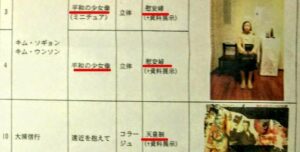 3
平和の少女像
(ミニチュア)
立体
慰安婦
(+資料展示)
キム・ソギョン
キム・ウンソン
4
平和の少女像
立体
慰安婦
(+資料展示)
10
大浦信行
遠近を抱えて
コラー
ジュ
天皇制
(+資料展示)